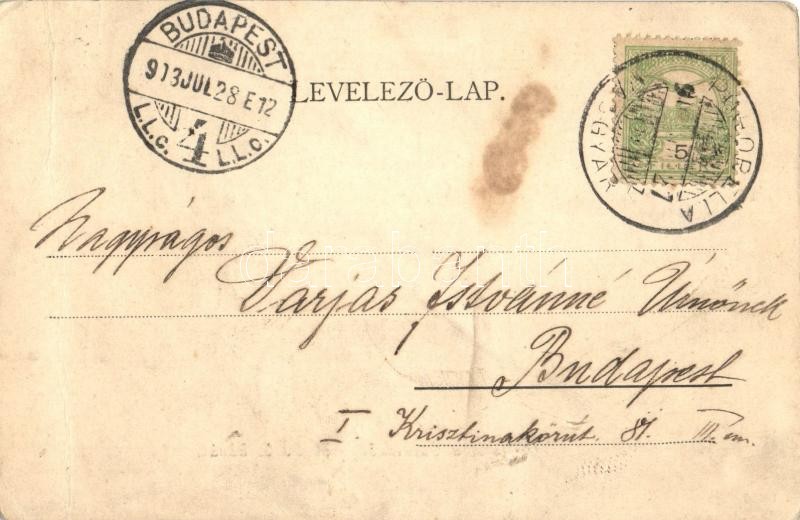 BUDAPEST
913 JUL 28 E 12
4
L.L.c. L.L.c.
LEVELEZŐ-LAP.
5
Nagyságos
Varjas Istvánné Úrnőnek
Budapest
I. Krisztinakörút. 81. III. em.